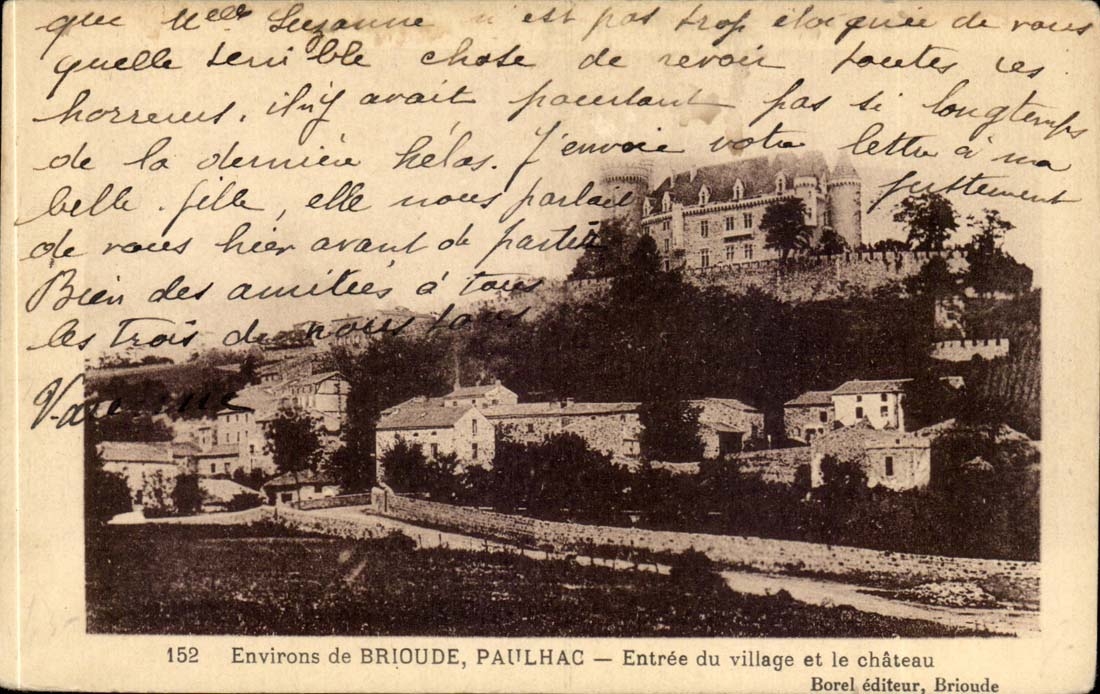 que Melle Suzanne n'est pas trop éloignée de vous
quelle terrible chose de revoir toutes ces
horreurs, il n'y avait pourtant pas si longtemps
de la dernière hélas. J'envoie votre lettre à ma
belle fille, elle nous parlait justement
de vous hier avant de partir
Bien des amitiés à tous
les trois de nous tous
152 Environs de BRIOUDE, PAULHAC — Entrée du village et le château
Borel éditeur, Brioude